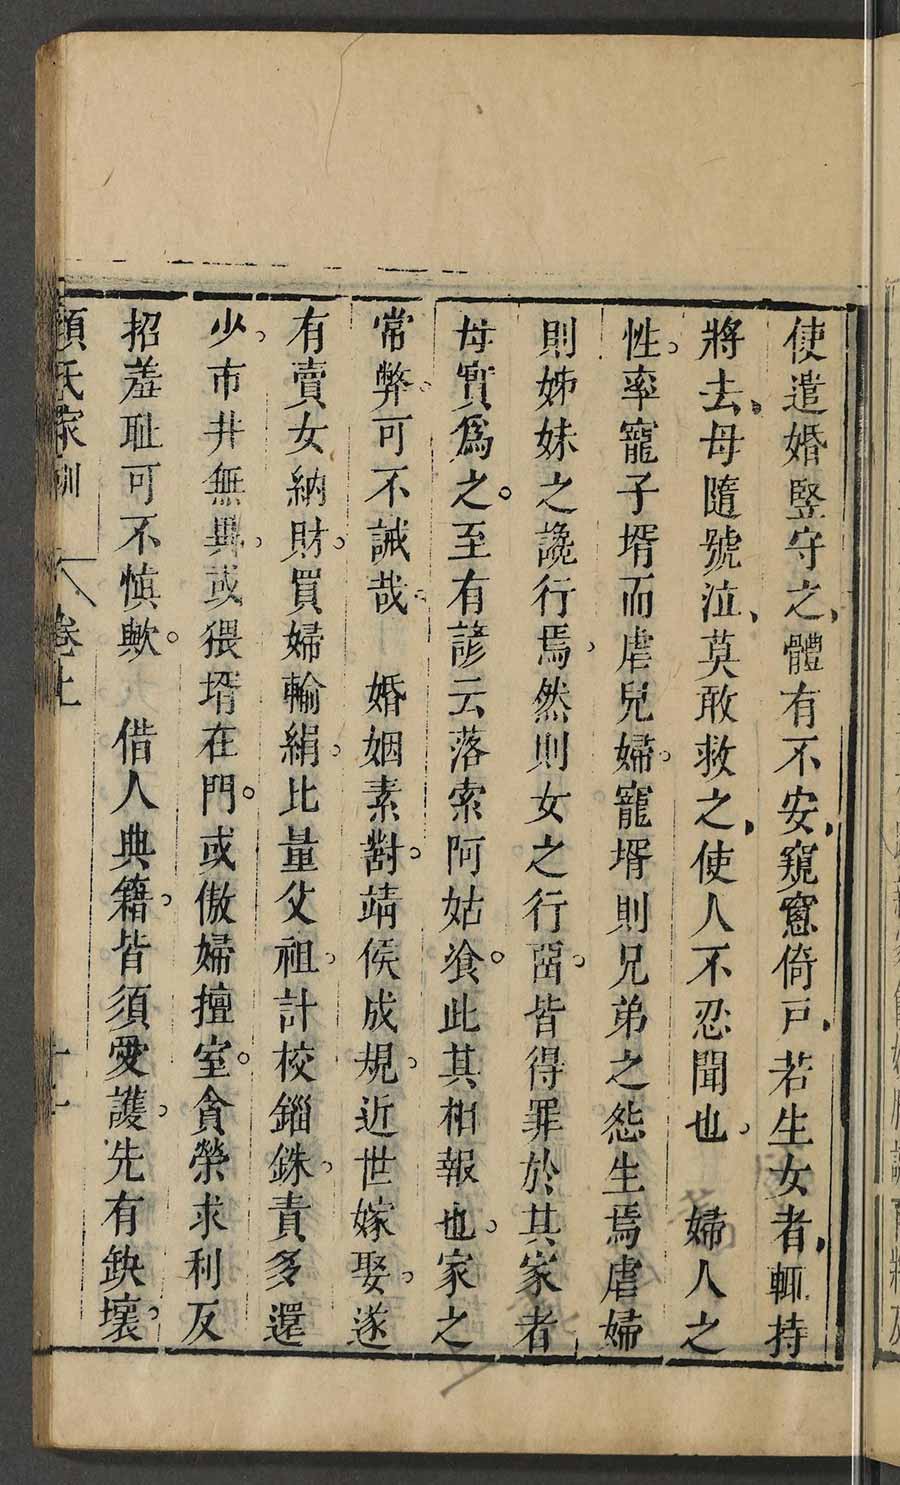 使遣婚豎守之體有不安窺窻倚戸若生女者輒持
將去母隨號泣莫敢救之使人不忍聞也　婦人之
性率寵子壻而虐兒婦寵壻則兄弟之怨生焉虐婦
則姊妹之讒行焉然則女之行畱皆得罪於其家者
母實爲之至有諺云落索阿姑飡此其相報也家之
常弊可不誡哉　婚姻素對靖侯成規近世嫁娶遂
有賣女納財買婦輸絹比量父祖計校錙銖責多還
少市井無異或猥壻在門或傲婦擅室貪榮求利反
招羞耻可不慎歟　借人典籍皆須愛護先有缺壞
顏氏家訓　卷上